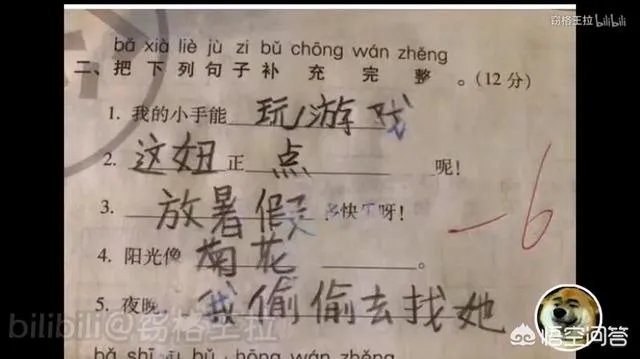 窃格王拉 bilibili
bǎ xià liè jù zi bǔ chōng wán zhěng
二、把下列句子补充完整。(12分)
1. 我的小手能玩游戏
2. 这妞正点呢!
3. 放暑假多快呀!
-6
4. 阳光像菊花。
5. 夜晚我偷偷去找她
bilibili@窃格王拉
悟空问答
bǎ shī bǔ chōng wán zhěng